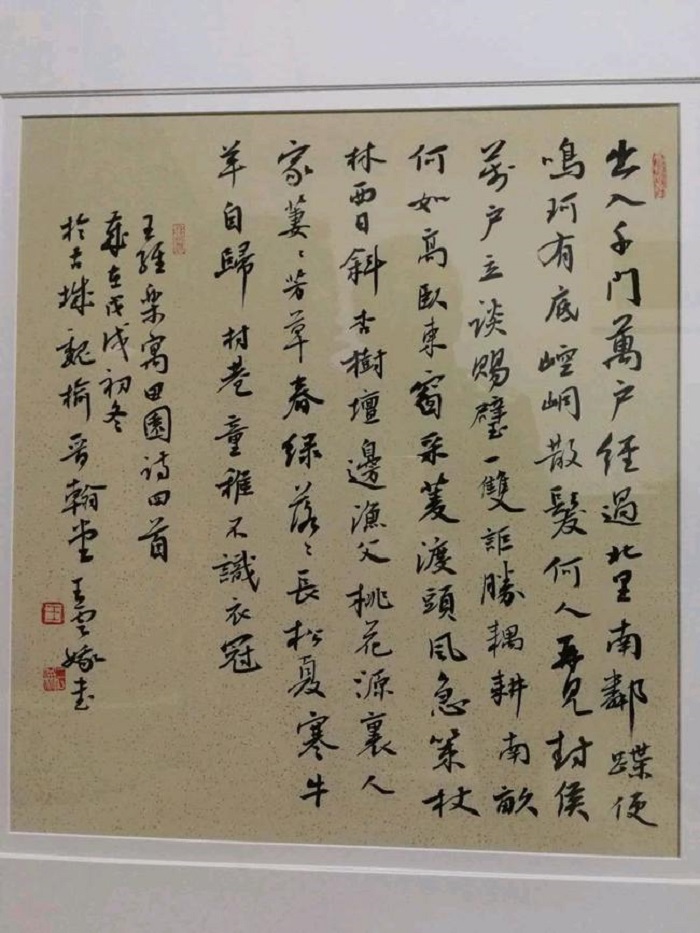 出入千門萬户經過北里南鄰蹀便
鳴珂有底崆峒散髮何人再見封侯
萬户立談賜璧一雙詎勝耦耕南畝
何如高臥東窗采菱渡頭風急策杖
林西日斜杏樹壇邊漁父桃花源裏人
家萋〻芳草春绿落〻長松夏寒牛
羊自歸村巷童稚不識衣冠
王維樂寓田園詩四首
歲在戊戌初冬
於古城魏榆晋翰堂王雲嫁书